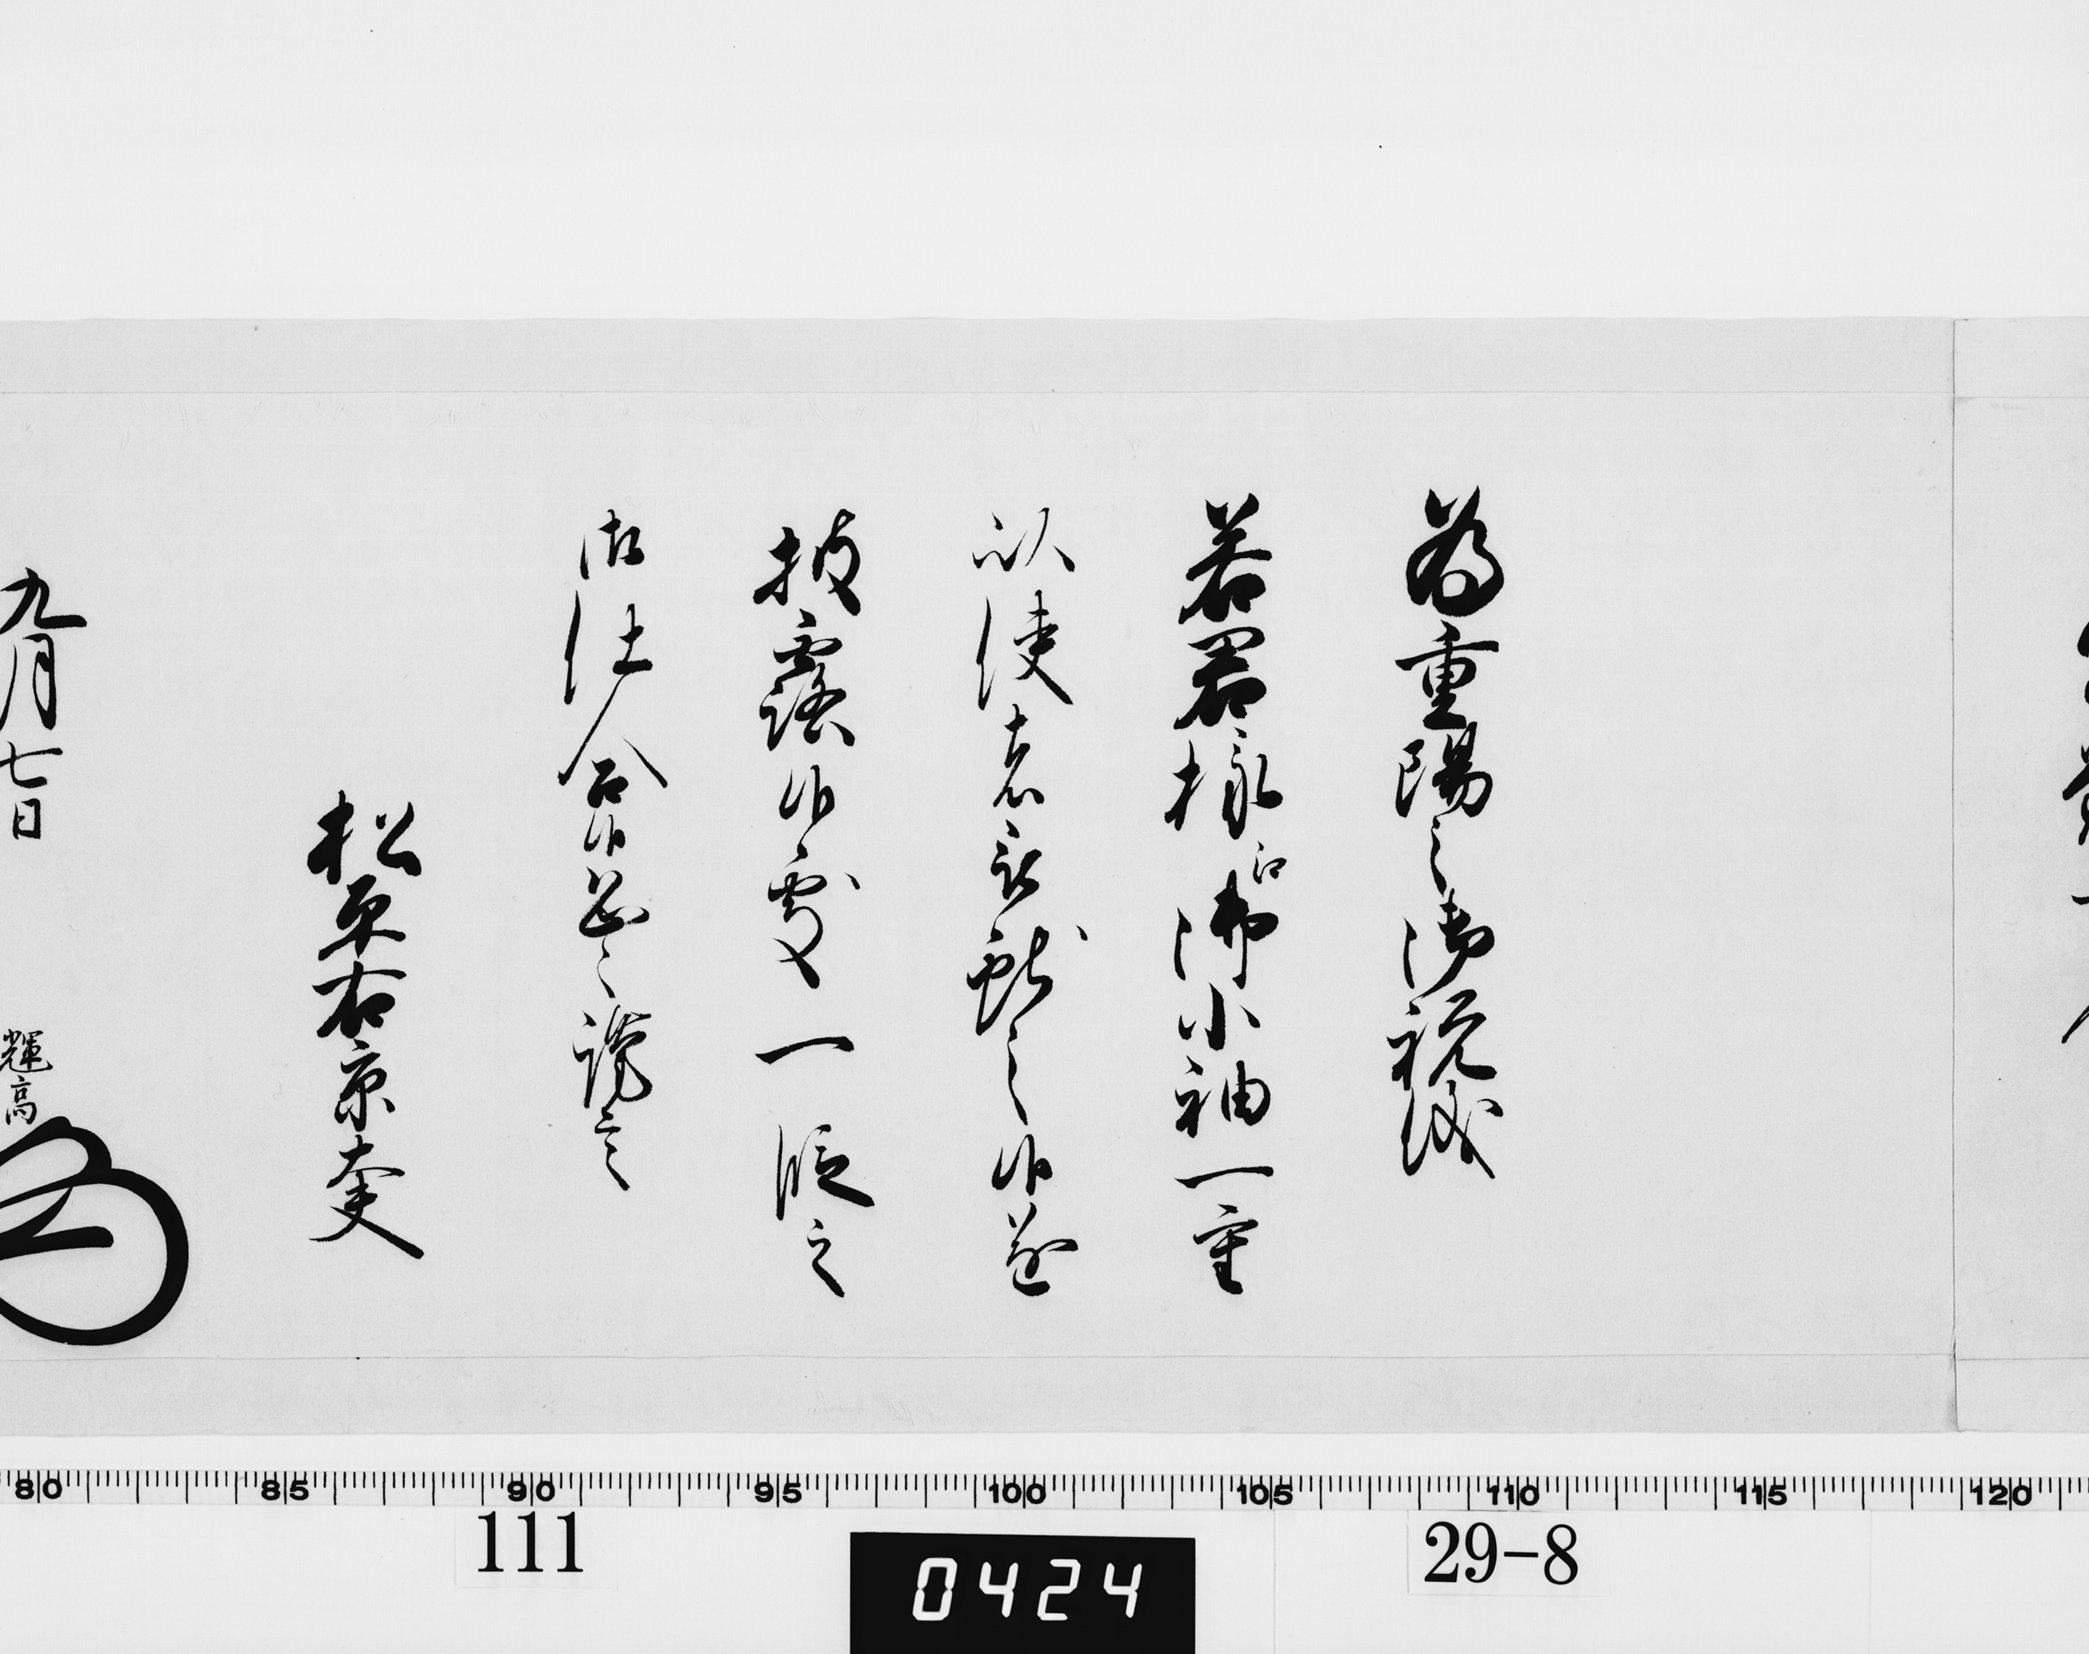 為重陽之御祝儀
若君様江御小袖一重
以使者被献之候遂
披露候處一段之
御仕合候恐々謹言
松平右京大夫
九月七日 輝高
80 85 90 95 100 105 110 115 120
111 0424 29-8